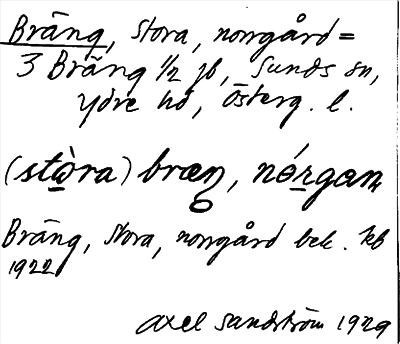 Bräng, stora, norrgård =
3 Bräng 1/2 jb, Sunds sn,
Ydre hd, Österg. l.
(stὼra) bræŋ, nórgaṇ
Bräng, Stora, norrgård bek. kb
1922
Axel Sandström 1929